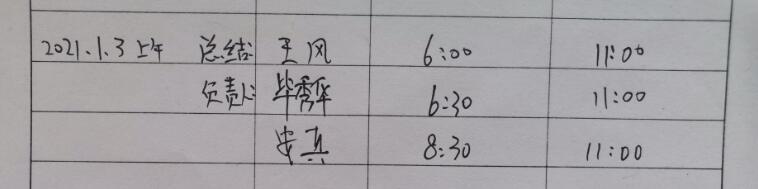 2021.1.3上午 总结 王风 6:00 11:00
负责人: 毕秀华 6:30 11:00
安真 8:30 11:00